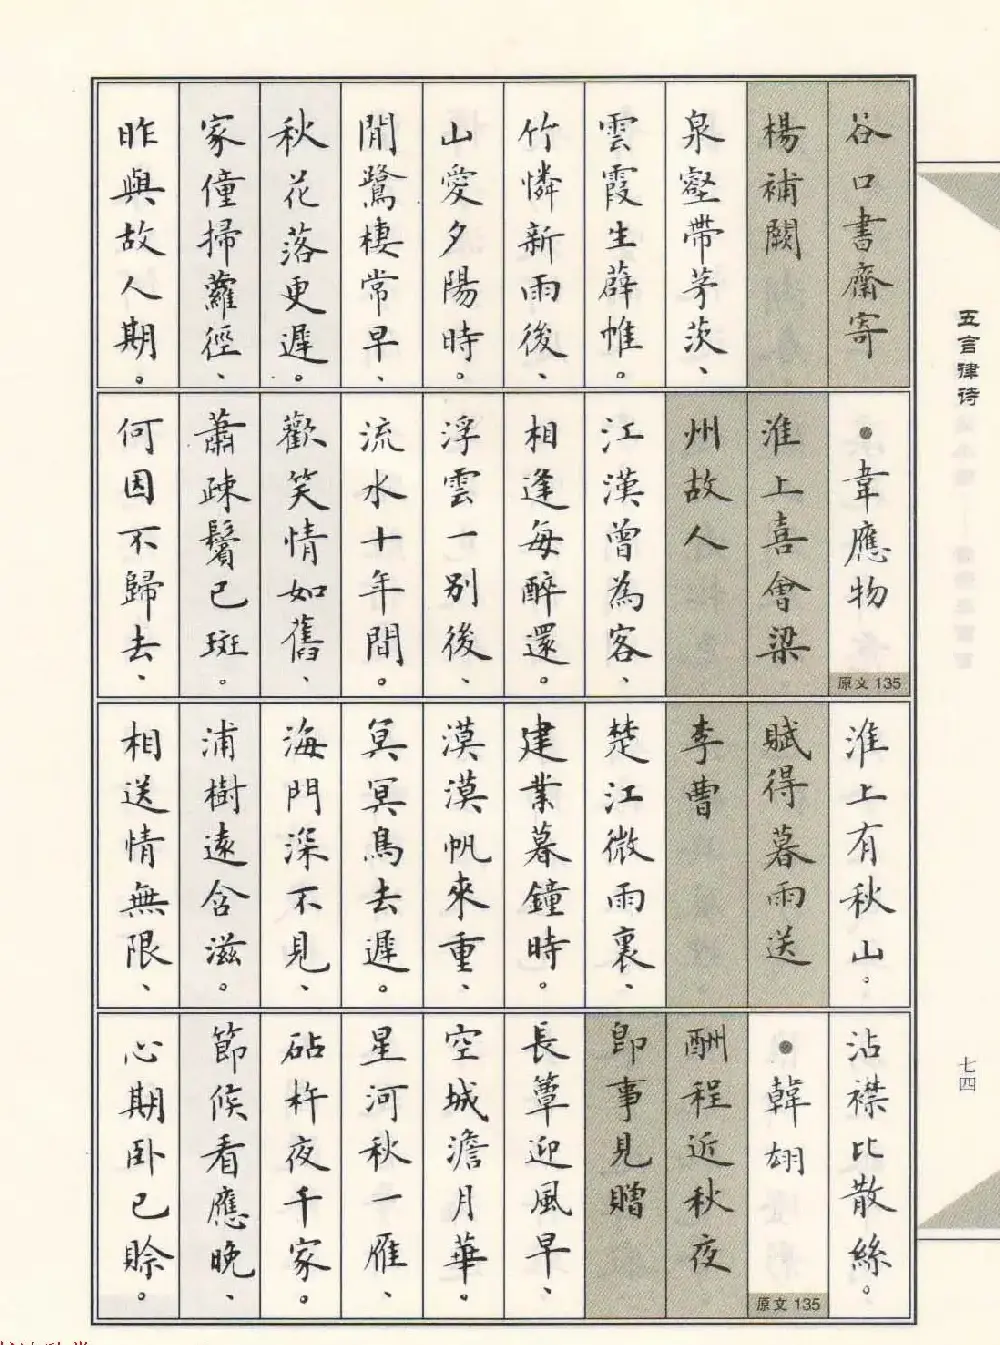 谷口書齋寄
楊補闕
泉壑帶茅茨、
雲霞生薜帷。
竹憐新雨後、
山愛夕陽時。
閒鷺棲常早、
秋花落更遲。
家僮掃蘿徑、
昨與故人期。
●韋應物
原文 135
淮上喜會梁
州故人
江漢曾為客、
相逢每醉還。
浮雲一別後、
流水十年間。
歡笑情如舊、
蕭疎鬢已斑。
何因不歸去、
淮上有秋山。
賦得暮雨送
李曹
楚江微雨裏、
建業暮鐘時。
漠漠帆來重、
冥冥鳥去遲。
海門深不見、
浦樹遠含滋。
相送情無限、
沾襟比散絲。
●韓翃
原文 135
酬程近秋夜
即事見贈
長簟迎風早、
空城澹月華。
星河秋一雁、
砧杵夜千家。
節候看應晚、
心期卧已賒。
五言律诗
七四